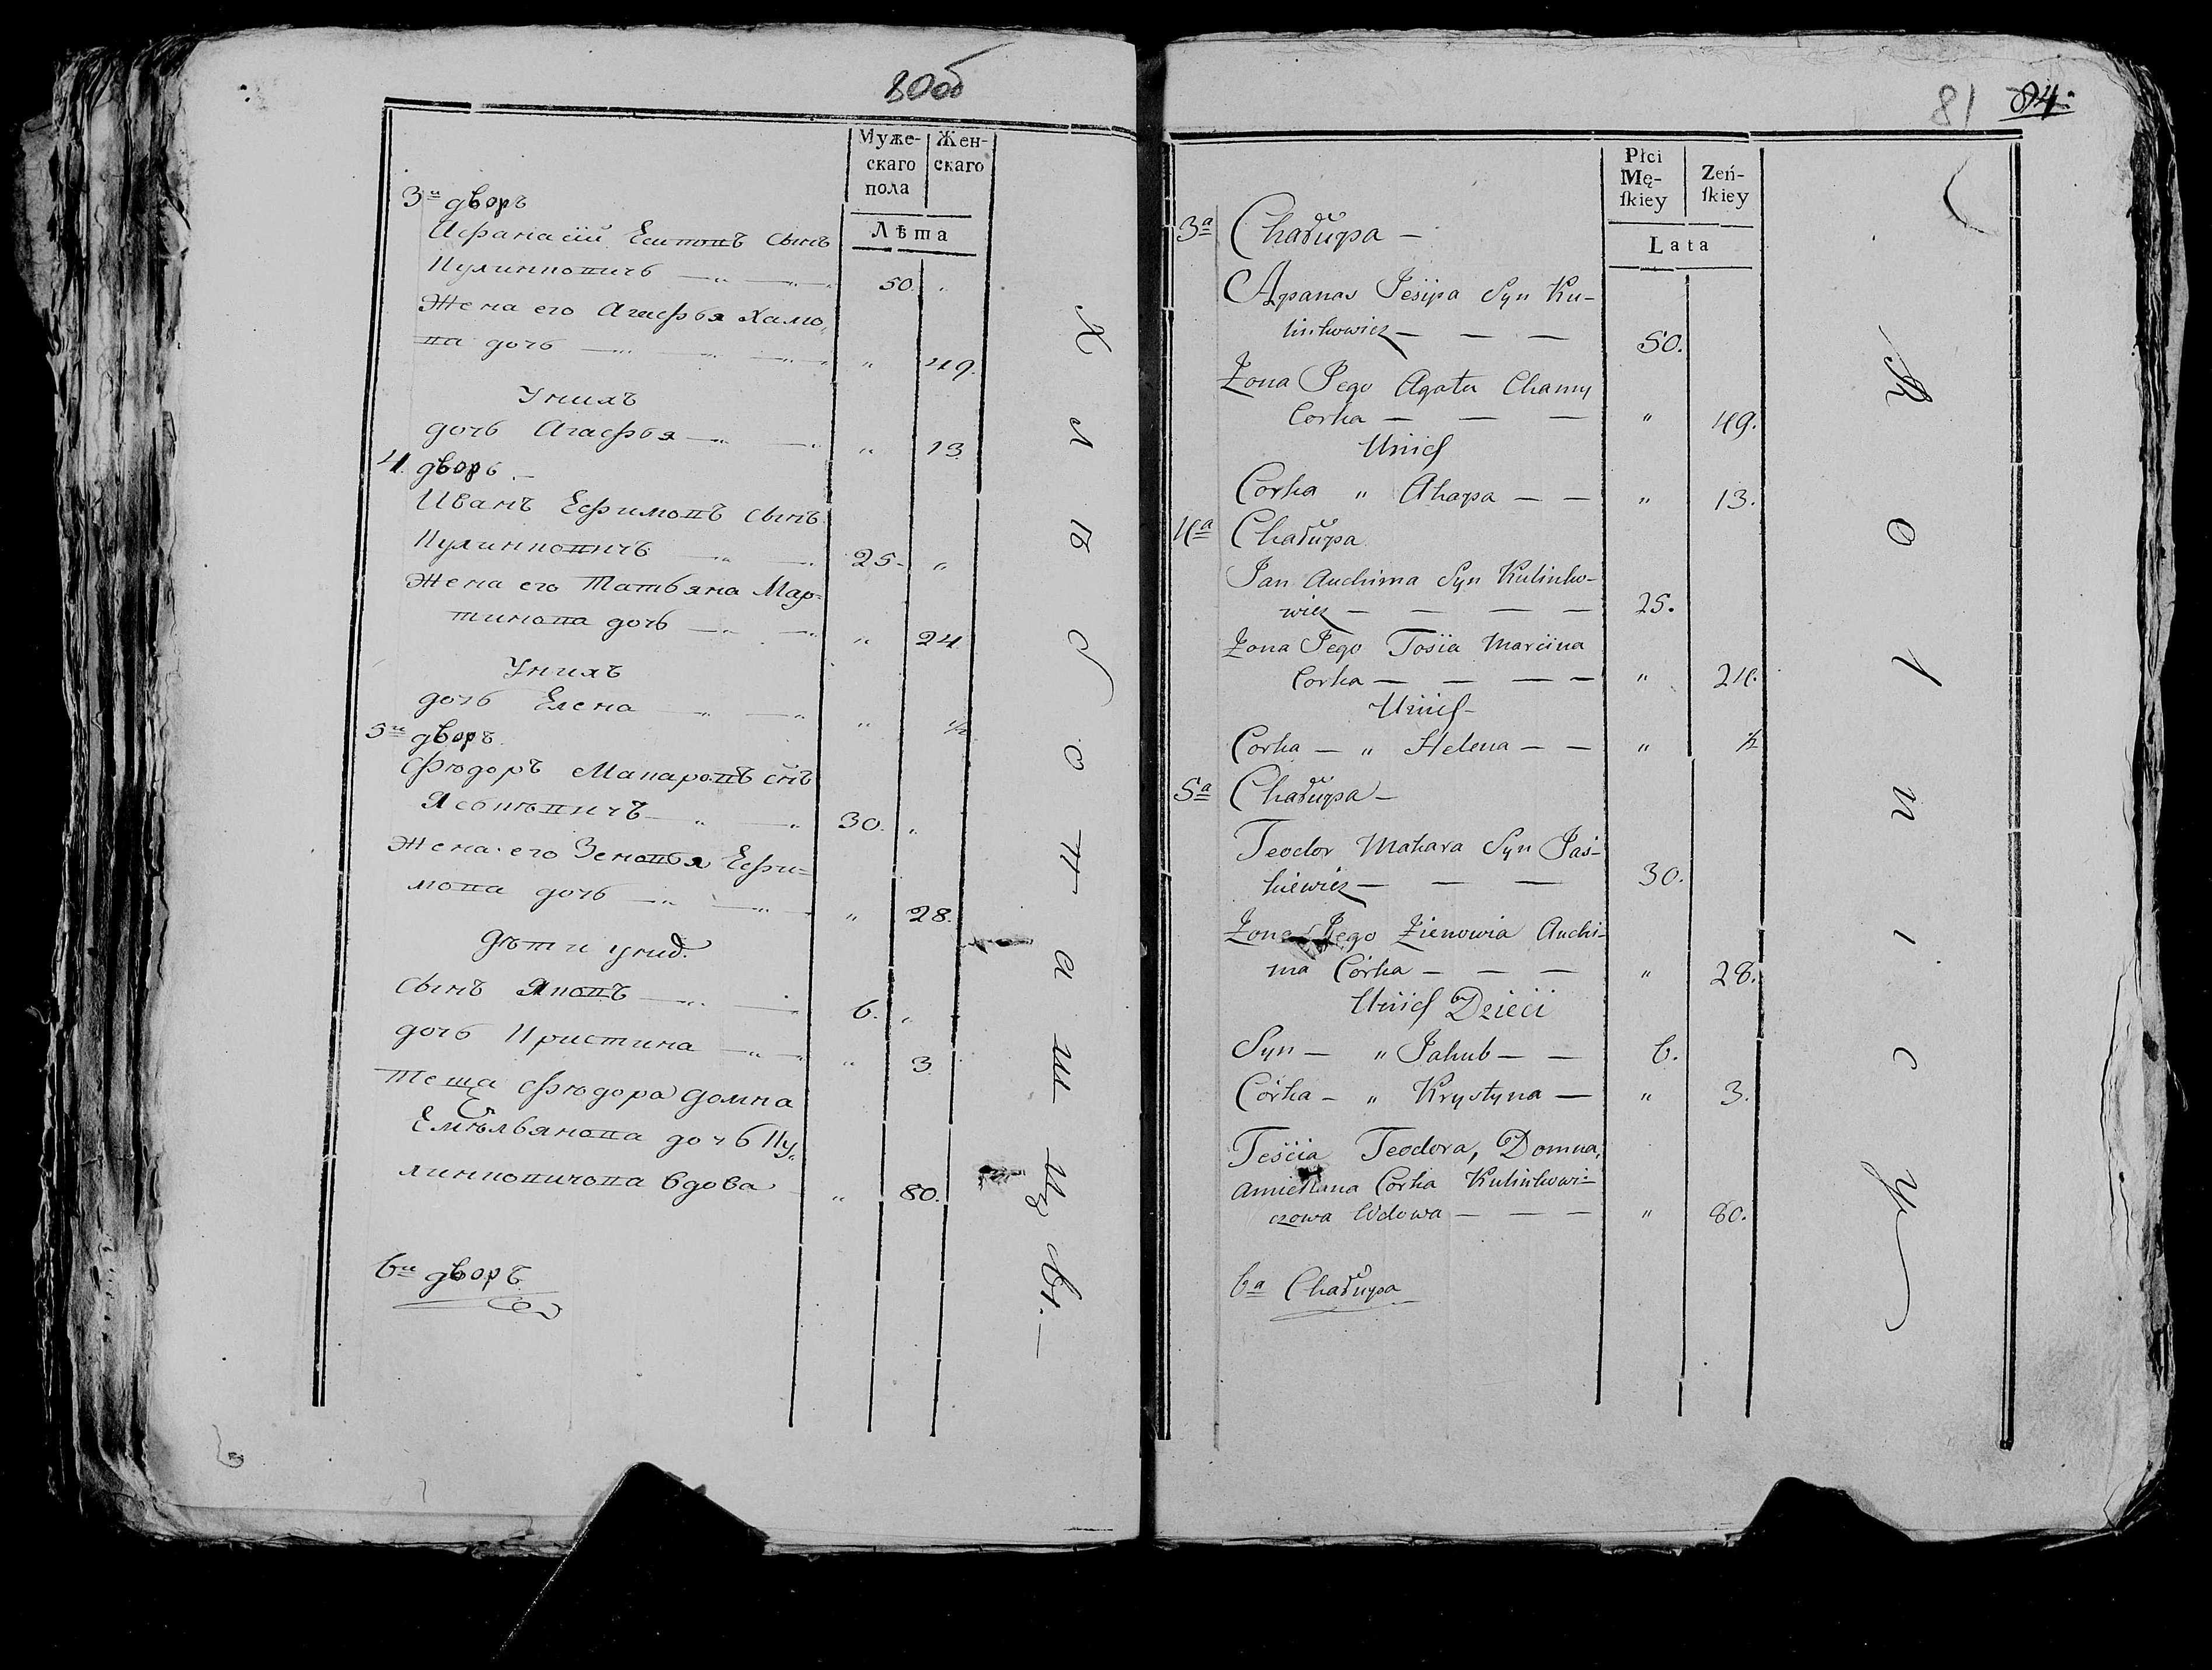 80об
Муже-
скаго
пола
Жен-
скаго
Лѣта
3й дворъ
Афанасій Есиповъ сынъ
Кулинковичъ 50.
Жена его Агафья Хамо-
ва дочь 49.
У нихъ
дочь Агафья 13.
4. дворъ
Иванъ Ефимовъ сынъ
Кулинковичъ 25.
Жена его Татьяна Мар-
тинова дочь 24
У нихъ
дочь Елена ½
5й дворъ
Фёдоръ Макаровъ сынъ
Ясѣкевичъ 30.
Жена его Зеновья Ефи-
мова дочь 28.
Дѣти у нид.
сынъ Яковъ 6.
дочь Кристина 3
Теща Фёдора Домна
Емельянова дочь Ку-
линковичова вдова 80.
6й дворъ
Хлѣбопашцы.
81 84.
Płci
Mę-
ſkiey
Zeń-
ſkiey
Lata
3a Chałupa
Apanas Jesipa Syn Ku-
linkowicz 50.
Żona Jego Agata Chamy
Corka " 49.
Unich
Corka " Ahapa " 13.
4a Chałupa
Jan Auchima Syn Kulinko-
wicz 25.
Żona Jego Tosia Marcina
Corka " 24.
Unich
Corka " Helena " ½
5a Chałupa
Teodor Makara Syn Jaś-
kiewicz 30.
Żona Jego Zienowia Auchi-
ma Córka " 28.
Unich Dzieci
Syn " Jakub 6.
Córka " Krystyna " 3.
Teścia Teodora, Domna,
Amieliana Corka Kulinkowi-
czowa Wdowa " 80.
6a Chałupa
Rolnicy